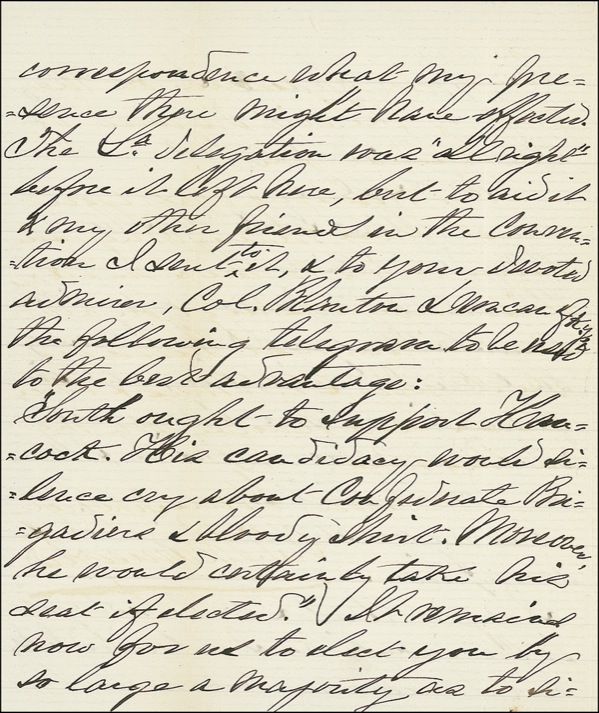 correspondence what my pre=
=sence there might have effected.
The La. delegation was "all right"
before it left here, but to aid it
& my other friends in the Conven=
=tion I sent to it, & to your devoted
admirer, Col. Blanton Duncan of Ky.
the following telegram to be used
to the best advantage:
"South ought to support Han=
=cock. His candidacy would si=
=lence cry about Confederate Bri=
=gadiers & bloody shirt. Moreover,
he would certainly take his
seat if elected." It remains
now for us to elect you by
so large a majority as to si=